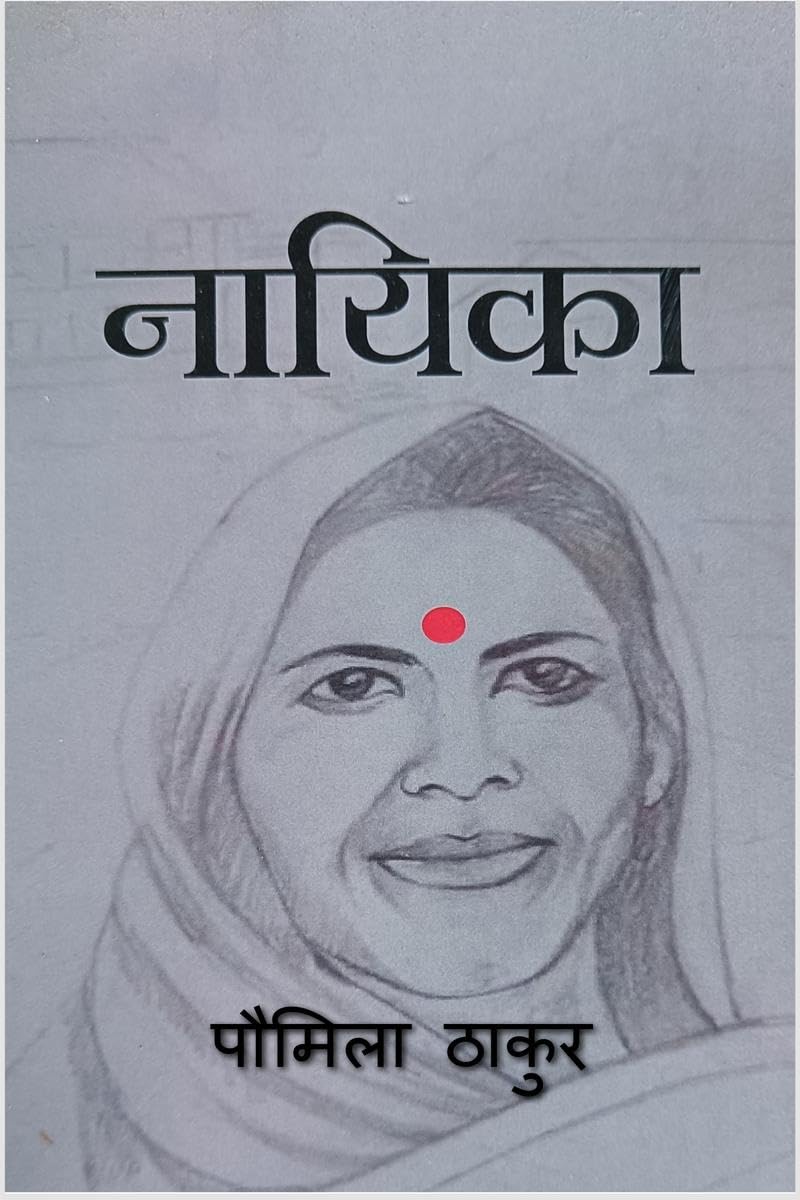 नायिका
पौमिला ठाकुर